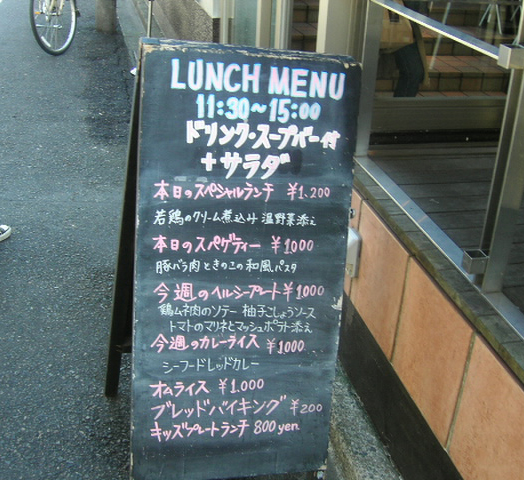 LUNCH MENU
11:30~15:00
ドリンク・スープバー付
+サラダ
本日のスペシャルランチ ¥1,200
若鶏のクリーム煮込み 温野菜添え
本日のスパゲティー ¥1000
豚バラ肉ときのこの和風パスタ
今週のヘルシープレート ¥1,000
鶏ムネ肉のソテー 柚子こしょうソース
トマトのマリネとマッシュポテト添え
今週のカレーライス ¥1000
シーフードレッドカレー
オムライス ¥1.000
ブレッドバイキング ¥200
キッズプレートランチ 800yen